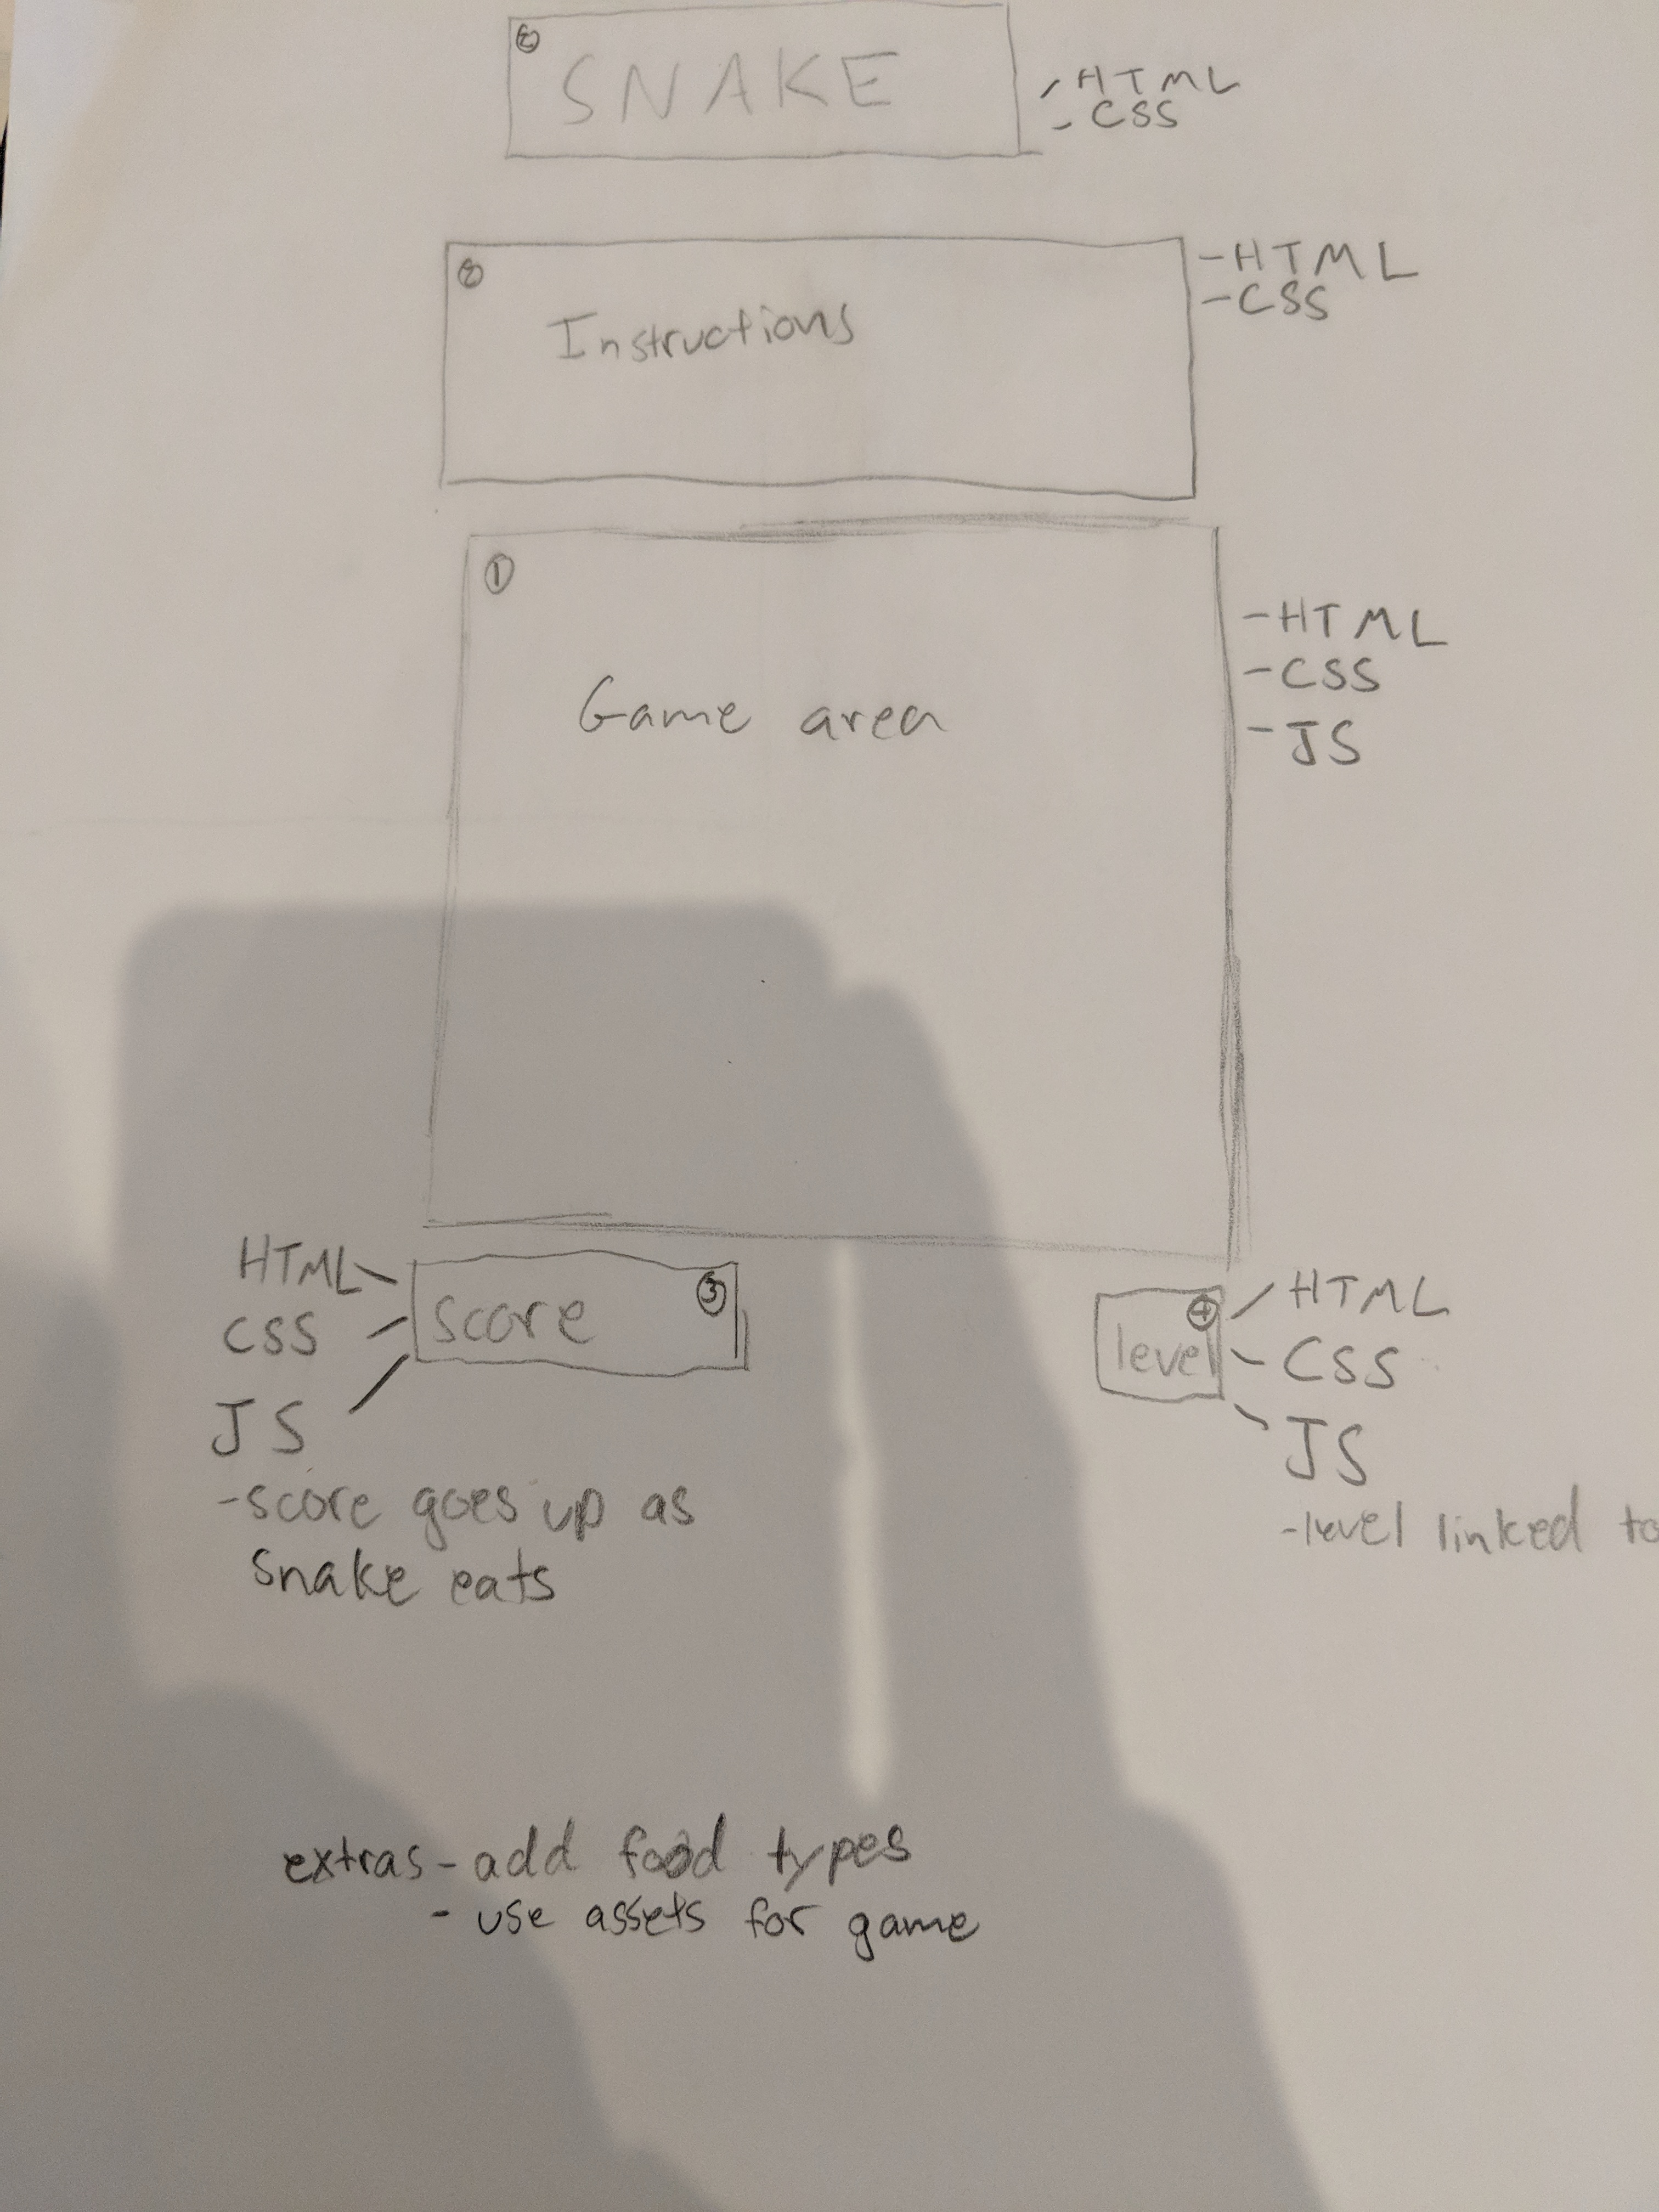 SNAKE
- HTML
- CSS
② Instructions
- HTML
- CSS
①
Game area
- HTML
- CSS
- JS
HTML
CSS
JS
score ③
- score goes up as
snake eats
level ④
HTML
CSS
JS
- level linked to
extras - add food types
- use assets for game